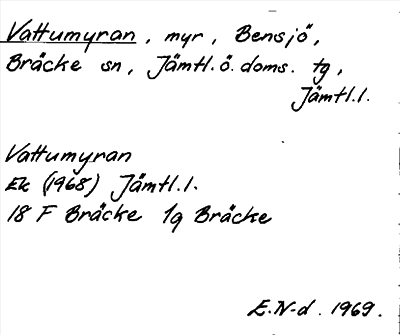 Vattumyran, myr, Bensjö,
Bräcke sn, Jämtl.ö.doms. tg,
Jämtl.l.
Vattumyran
Ek (1968) Jämtl.l.
18 F Bräcke 1g Bräcke
E.N-d. 1969.